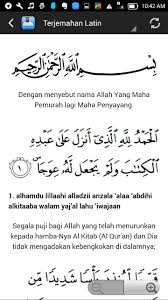 10:42 AM
Terjemahan Latin
بِسْمِ اللَّهِ الرَّحْمَٰنِ الرَّحِيمِ
Dengan menyebut nama Allah Yang Maha
Pemurah lagi Maha Penyayang.
الْحَمْدُ لِلَّهِ الَّذِي أَنْزَلَ عَلَى عَبْدِهِ
الْكِتَابَ وَلَمْ يَجْعَلْ لَهُ عِوَجًا ١
1. alhamdu lillaahi alladzii anzala 'alaa 'abdihi
alkitaaba walam yaj'al lahu 'iwajaan
Segala puji bagi Allah yang telah menurunkan
kepada hamba-Nya Al Kitab (Al Qur'an) dan Dia
tidak mengadakan kebengkokan di dalamnya;
قَيِّمًا لِيُنْذِرَ بَأْسًا شَدِيدًا مِنْ